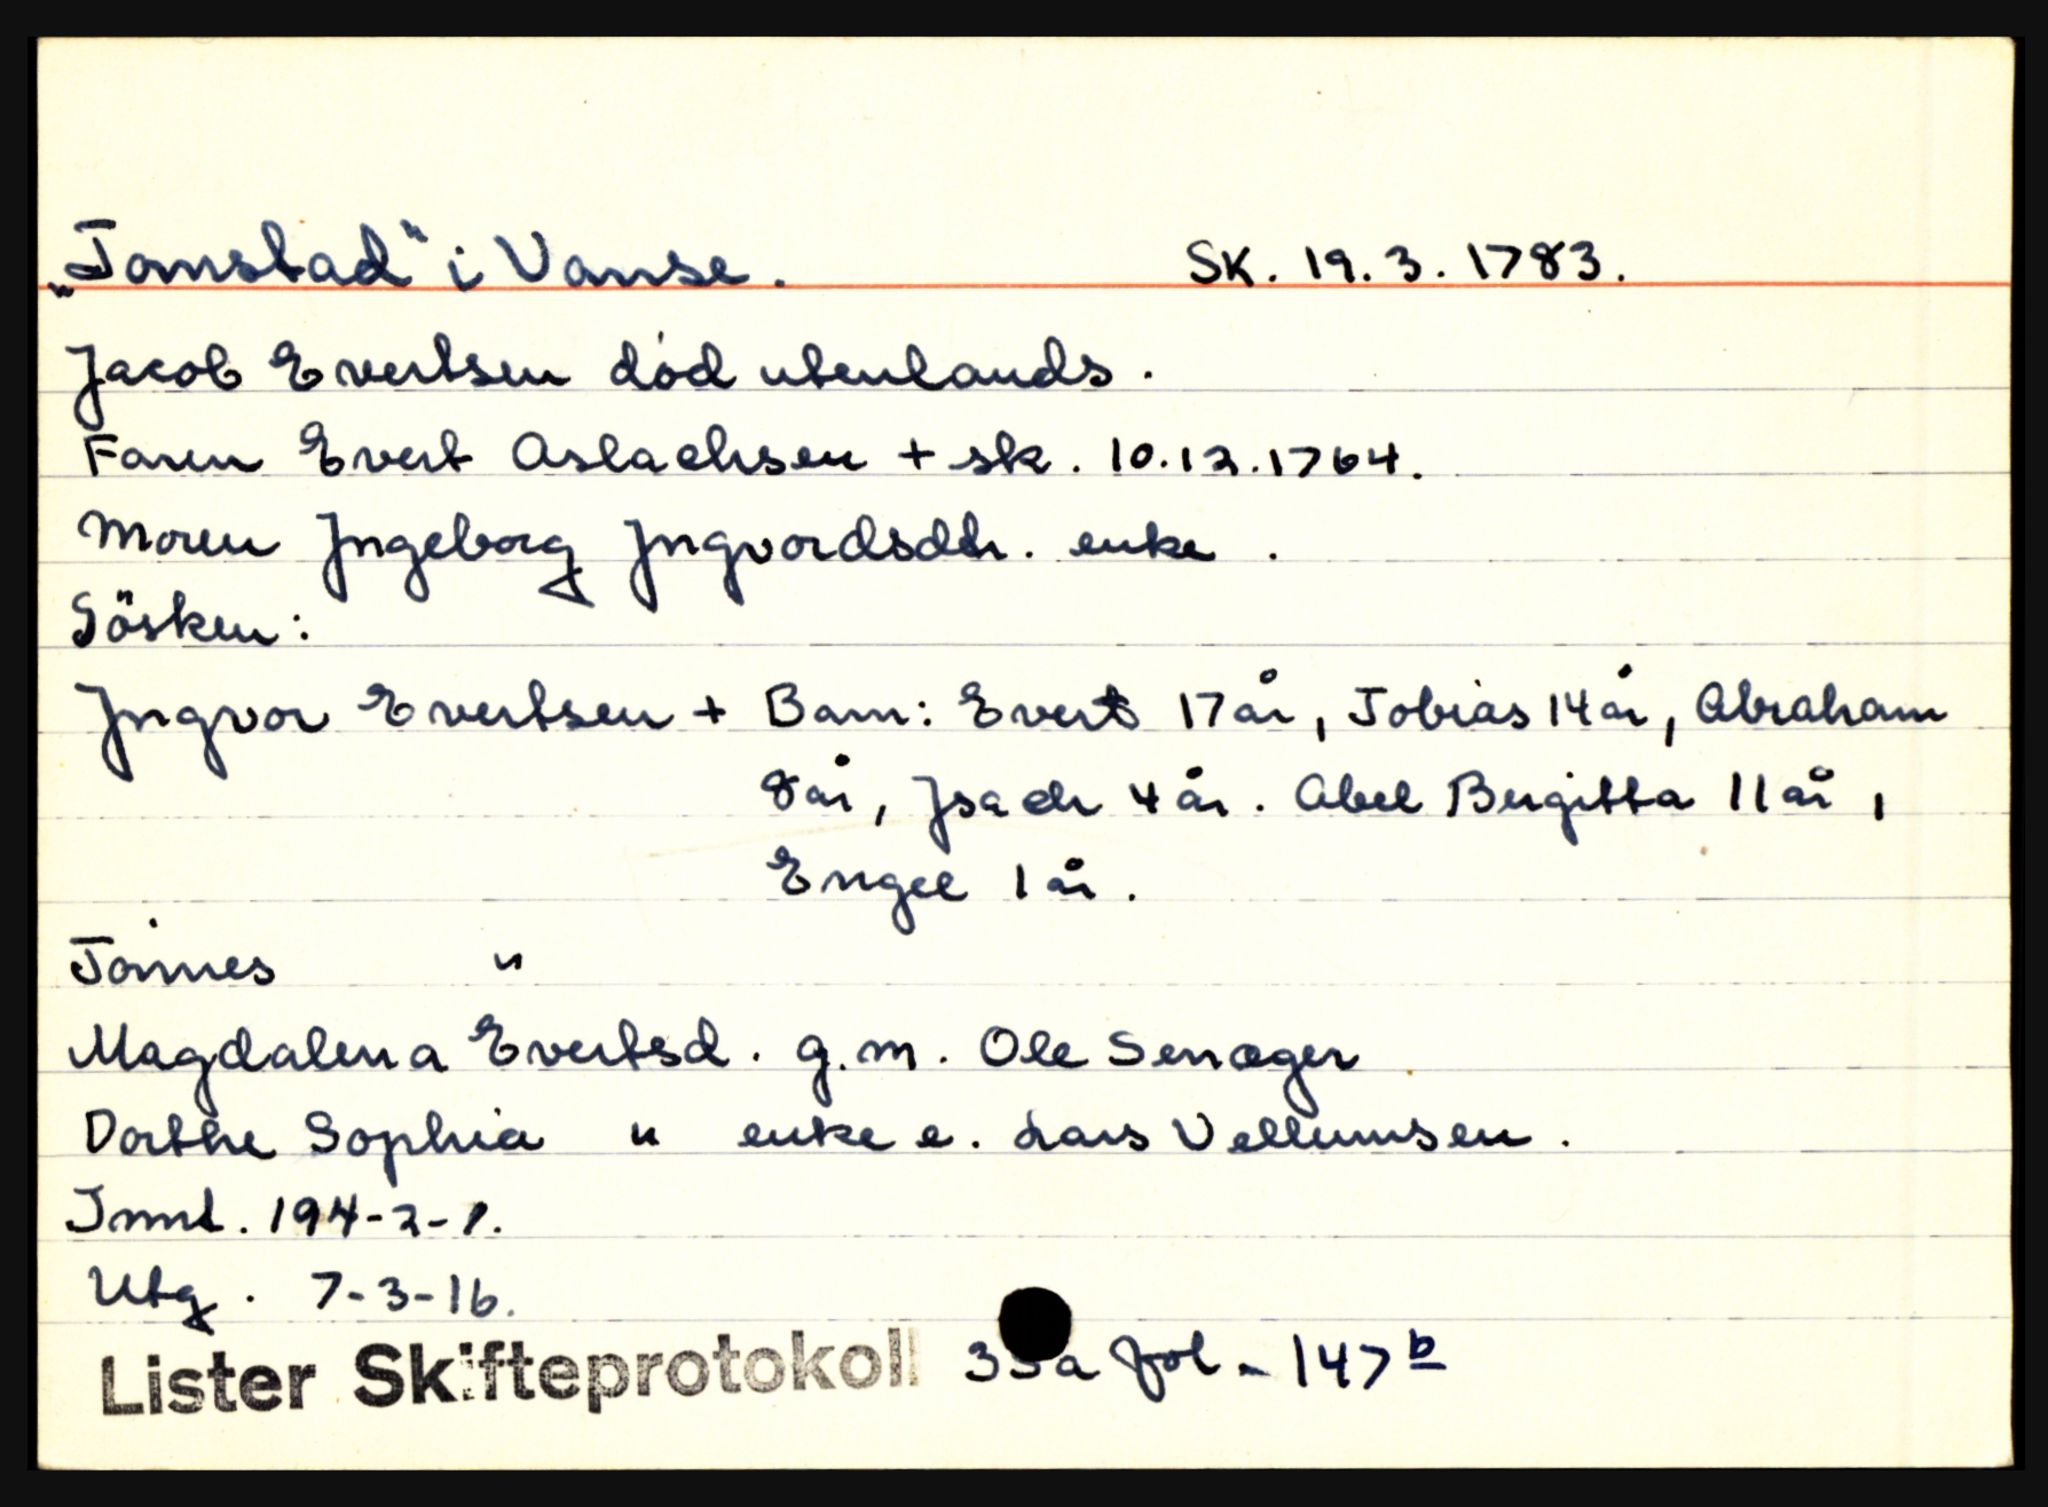 „Tomstad" i Vanse. SK. 19.3.1783.
Jacob Evertsen död utenlands.
Faren Evert Aslachsen + sk. 10.12.1764.
Moren Jngeborg Jngvordsdtr. enke.
Sösken:
Jngvor Evertsen + Barn: Evert 17 år, Tobias 14 år, Abraham
8 år, Jsach 4 år. Abel Birgitta 11 år,
Engel 1 år.
Tönnes "
Magdalena Evertsd. g.m. Ole Senæger
Dorthe Sophia " enke e. Lars Vellumsen.
Innt. 194-2-1.
Utg. 7-3-16.
Lister Skifteprotokoll fol - 147 b